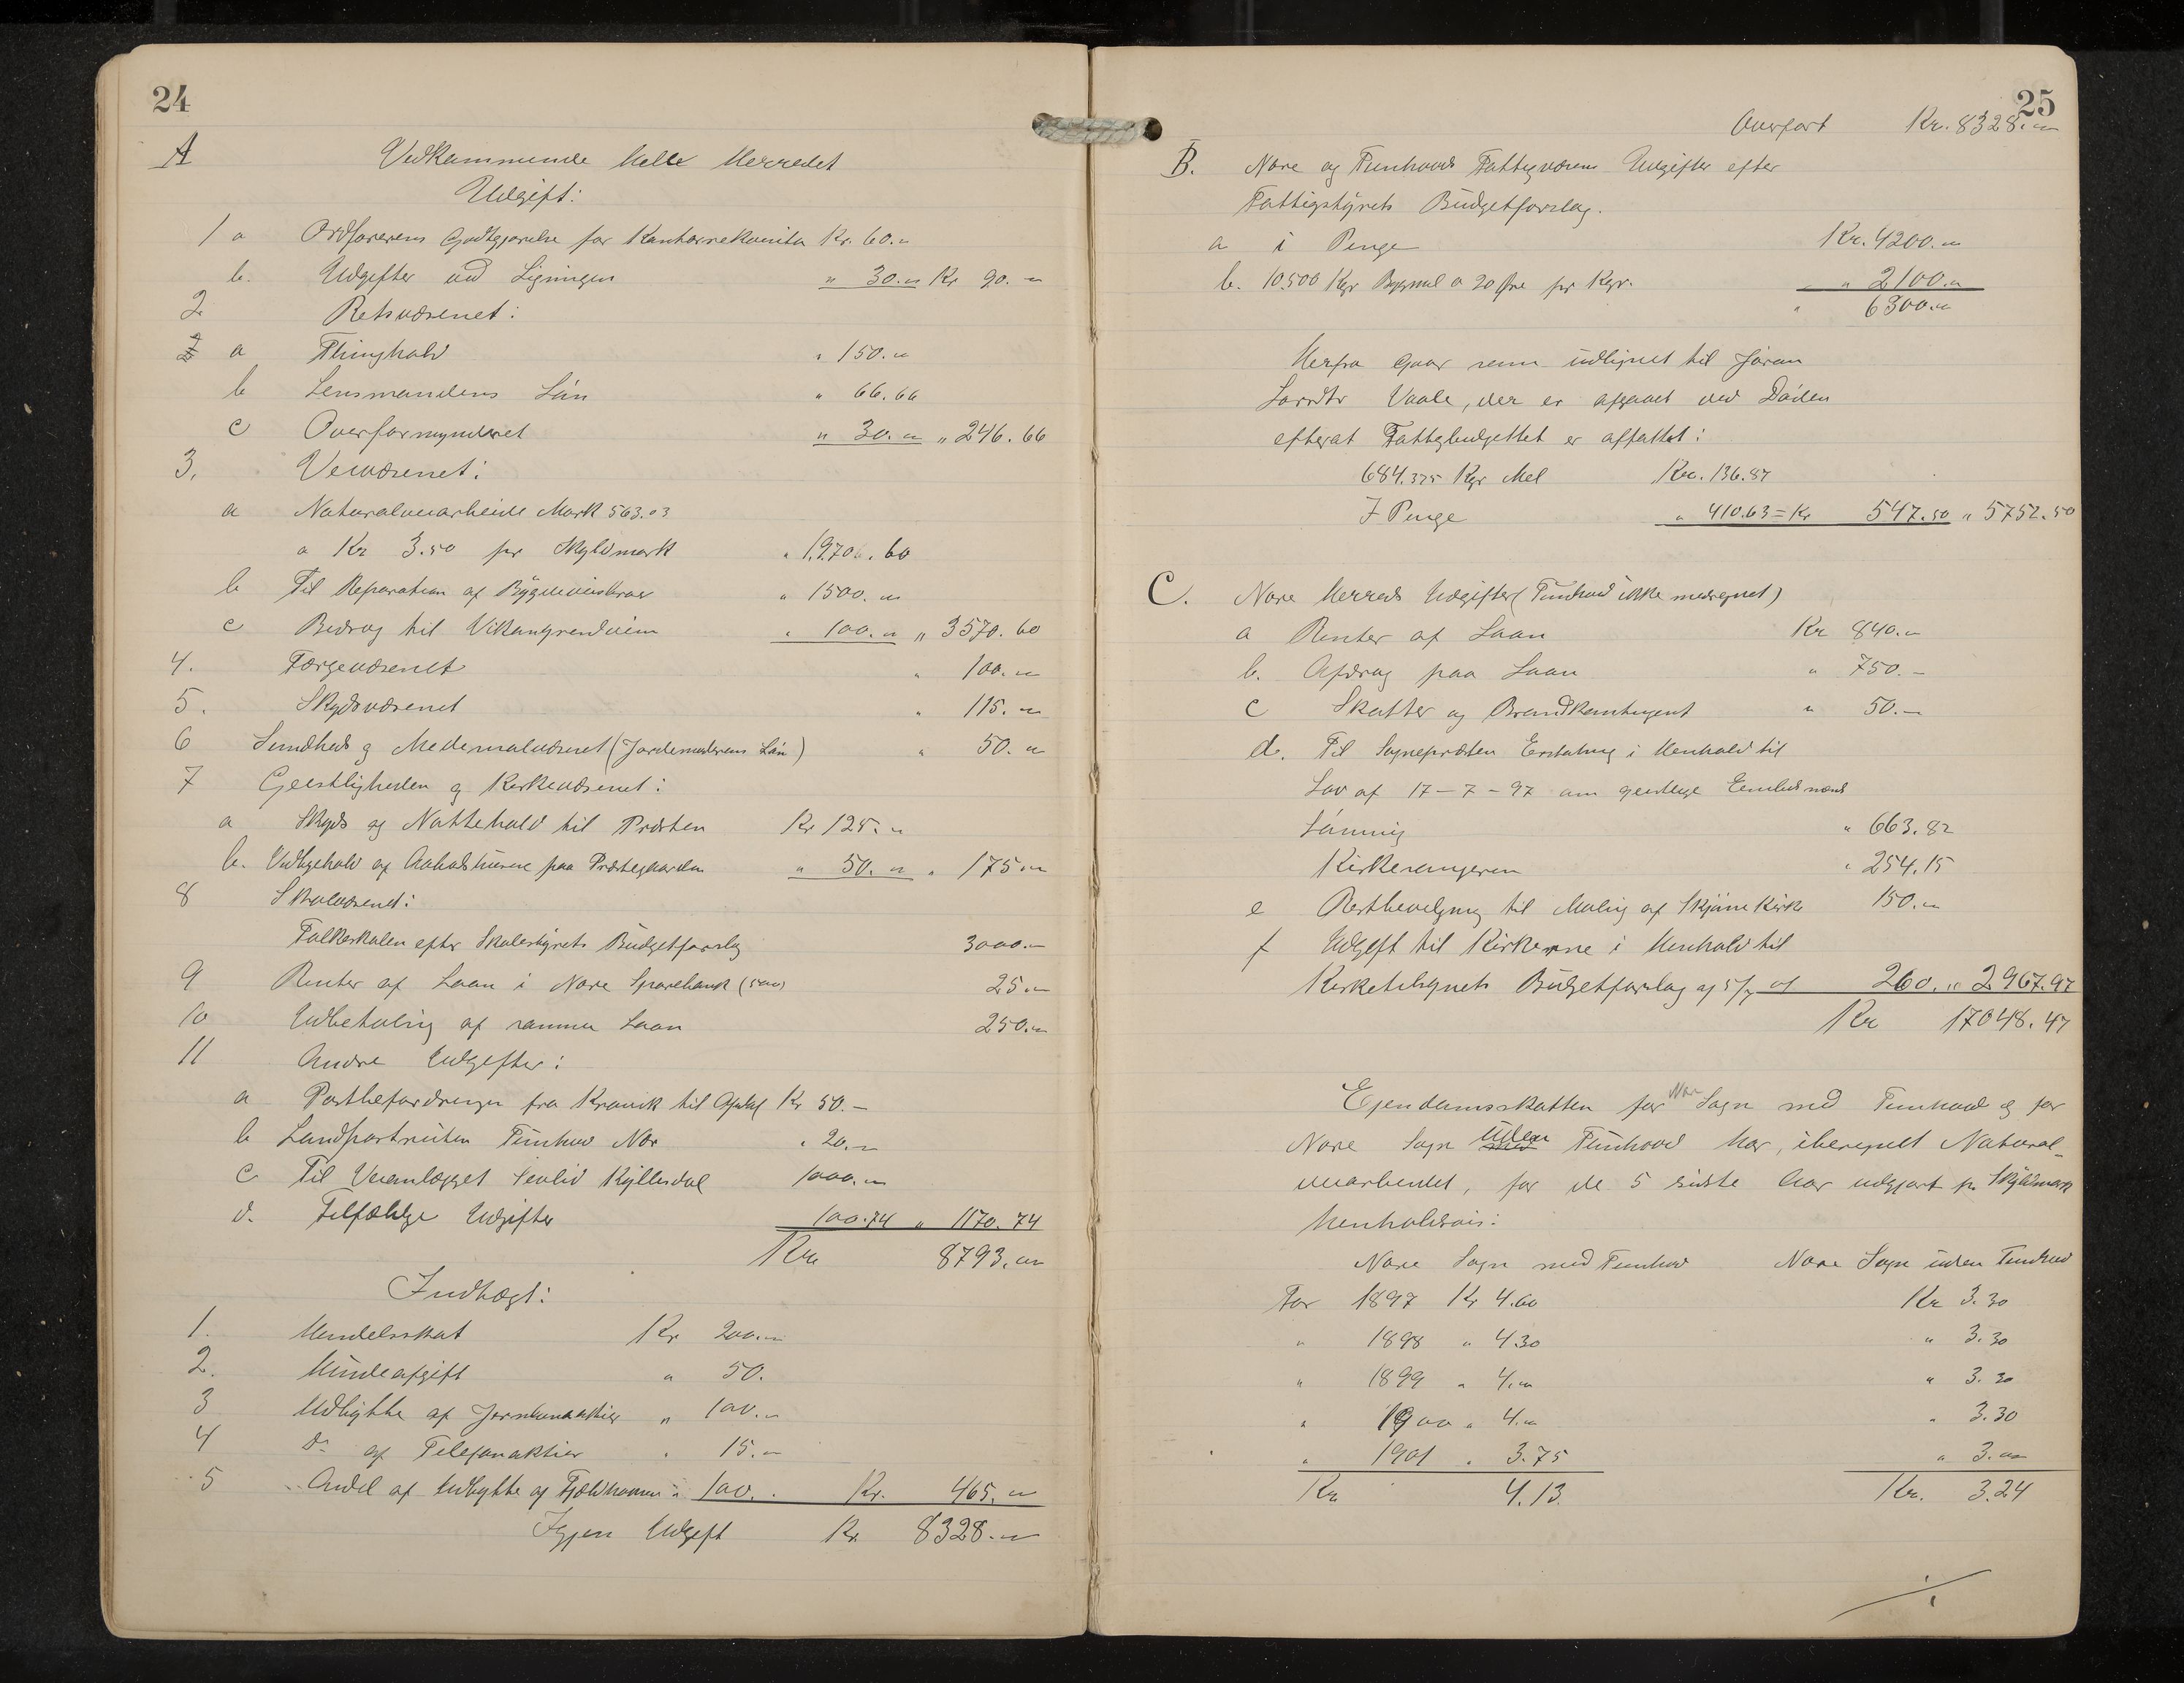 24
A Vedkommende hele Herredet
Udgift:
1 a Ordførerens Godtgjørelse for Kontorrekvisita Kr. 60.„
b. Udgifter ved Ligningen „ 30.„ Kr 90.„
2 Retsvæsenet:
a Thinghold „ 150.„
b Lensmandens Løn „ 66.66
c Overformynderet „ 30.„ „ 246.66
3. Veivæsenet:
a Naturalveiarbeide Mark 563.03
a Kr 3.50 pr Skyldmark „ 1970.60
b Til Reparation af Bygdeveiene „ 1500.„
c Bidrag til Vikangrendveien „ 100.„ „ 3570.60
4. Færgevæsenet „ 100.„
5. Skydsvæsenet „ 115.„
6 Sundheds og Medicinalvæsenet (Jordemoderens Løn) „ 50.„
7 Geistligheden og Kirkevæsenet:
a Skyds og Nattehold til Præsten Kr 125.„
b. Vedligehold af Aabodshusene paa Præstegaarden „ 50.„ „ 175.„
8 Skolevæsenet:
Folkeskolen efter Skolestyrets Budgetforslag 3000.–
9 Renter af Laan i Nore Sparebank (500) 25.„
10 Udbetaling af samme Laan 250.„
11 Andre Udgifter:
a Postbefordringen fra Kravik til Opdal Kr 50.–
b Landpostruten Tunhov Nore „ 20.„
c Til Veianlægget Sevlid Kyllesdal 1000.„
d. Tilfældige Udgifter 100.74 „ 1170.74
Kr. 8793.„
Indtægt:
1. Handelsskat Kr 200.„
2. Hundeafgift „ 50.
3 Udbytte af Jernbaneaktier „ 100.„
4 Do af Telefonaktier „ 15.„
5 Andel af Udbytte af Fjeldhavnen „ 100.. Kr. 465.„
Igjen Udgift Kr 8328.„
25
Overført Kr. 8328.„
B. Nore og Tunhovds Fattigvæsens Udgifter efter
Fattigstyrets Budgetforslag.
a i Penge Kr. 4200.„
b. 10.500 Kgr Bygmel a 20 Øre pr Kgr. „ 2100.„
„ 6300.„
Herfra gaar som udlignet til Jøran
Vaale, der er afgaaet ved Døden
efterat Fattigbudgettet er affattet:
684.375 Kgr Mel Kr. 136.87
I Penge „ 410.63 = Kr 547.50 „ 5752.50
C. Nore Herreds Udgifter (Tunhovd ikke medregnet)
a Renter af Laan Kr 840.„
b. Afdrag paa Laan „ 750.–
c Skatter og Brandkontingent „ 50.–
d. Til Sognepræsten Erstatning i Henhold til
Lov af 17–7–97 om geistlige Embedsmænds
Lønning „ 663.82
Kirkesangeren „ 254.15
e Restbevilgning til Maling af Skjønne Kirke 150.„
f Udgift til Kirkerne i Henhold til
Kirketilsynets Budgetforslag af 260.„ 2967.97
Kr 17048.47
Ejendomsskatten for Nore Sogn med Tunhovd og for
Nore Sogn uden Tunhovd har, iberegnet Natural-
veiarbeidet, for de 5 sidste Aar udgjort pr Skyldmark
henholdsvis:
Nore Sogn med Tunhov Nore Sogn uden Tunhov
For 1897 Kr 4.60 Kr 3.30
„ 1898 „ 4.30 „ 3.30
„ 1899 „ 4.„ „ 3.30
„ 1900 „ 4.„ „ 3.30
„ 1901 „ 3.75 „ 3.„
Kr 4.13 Kr. 3.24